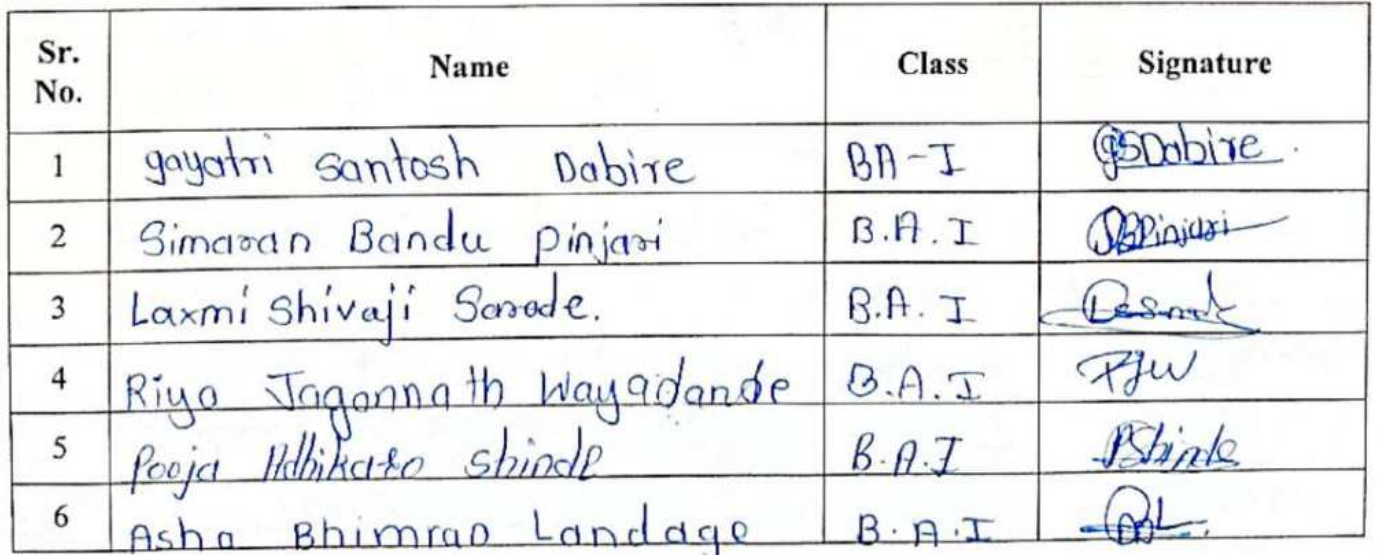 Sr. No. Name Class Signature
1 gayatri santosh Dabire BA-I GSDabire
2 Simaran Bandu pinjari B.A.I SBPinjari
3 Laxmi Shivaji Sarode. B.A.I
4 Riya Jagannath Wayadande B.A.I RJW
5 Pooja shinde B.A.I PShinde
6 Asha Bhimrao Landage B.A.I